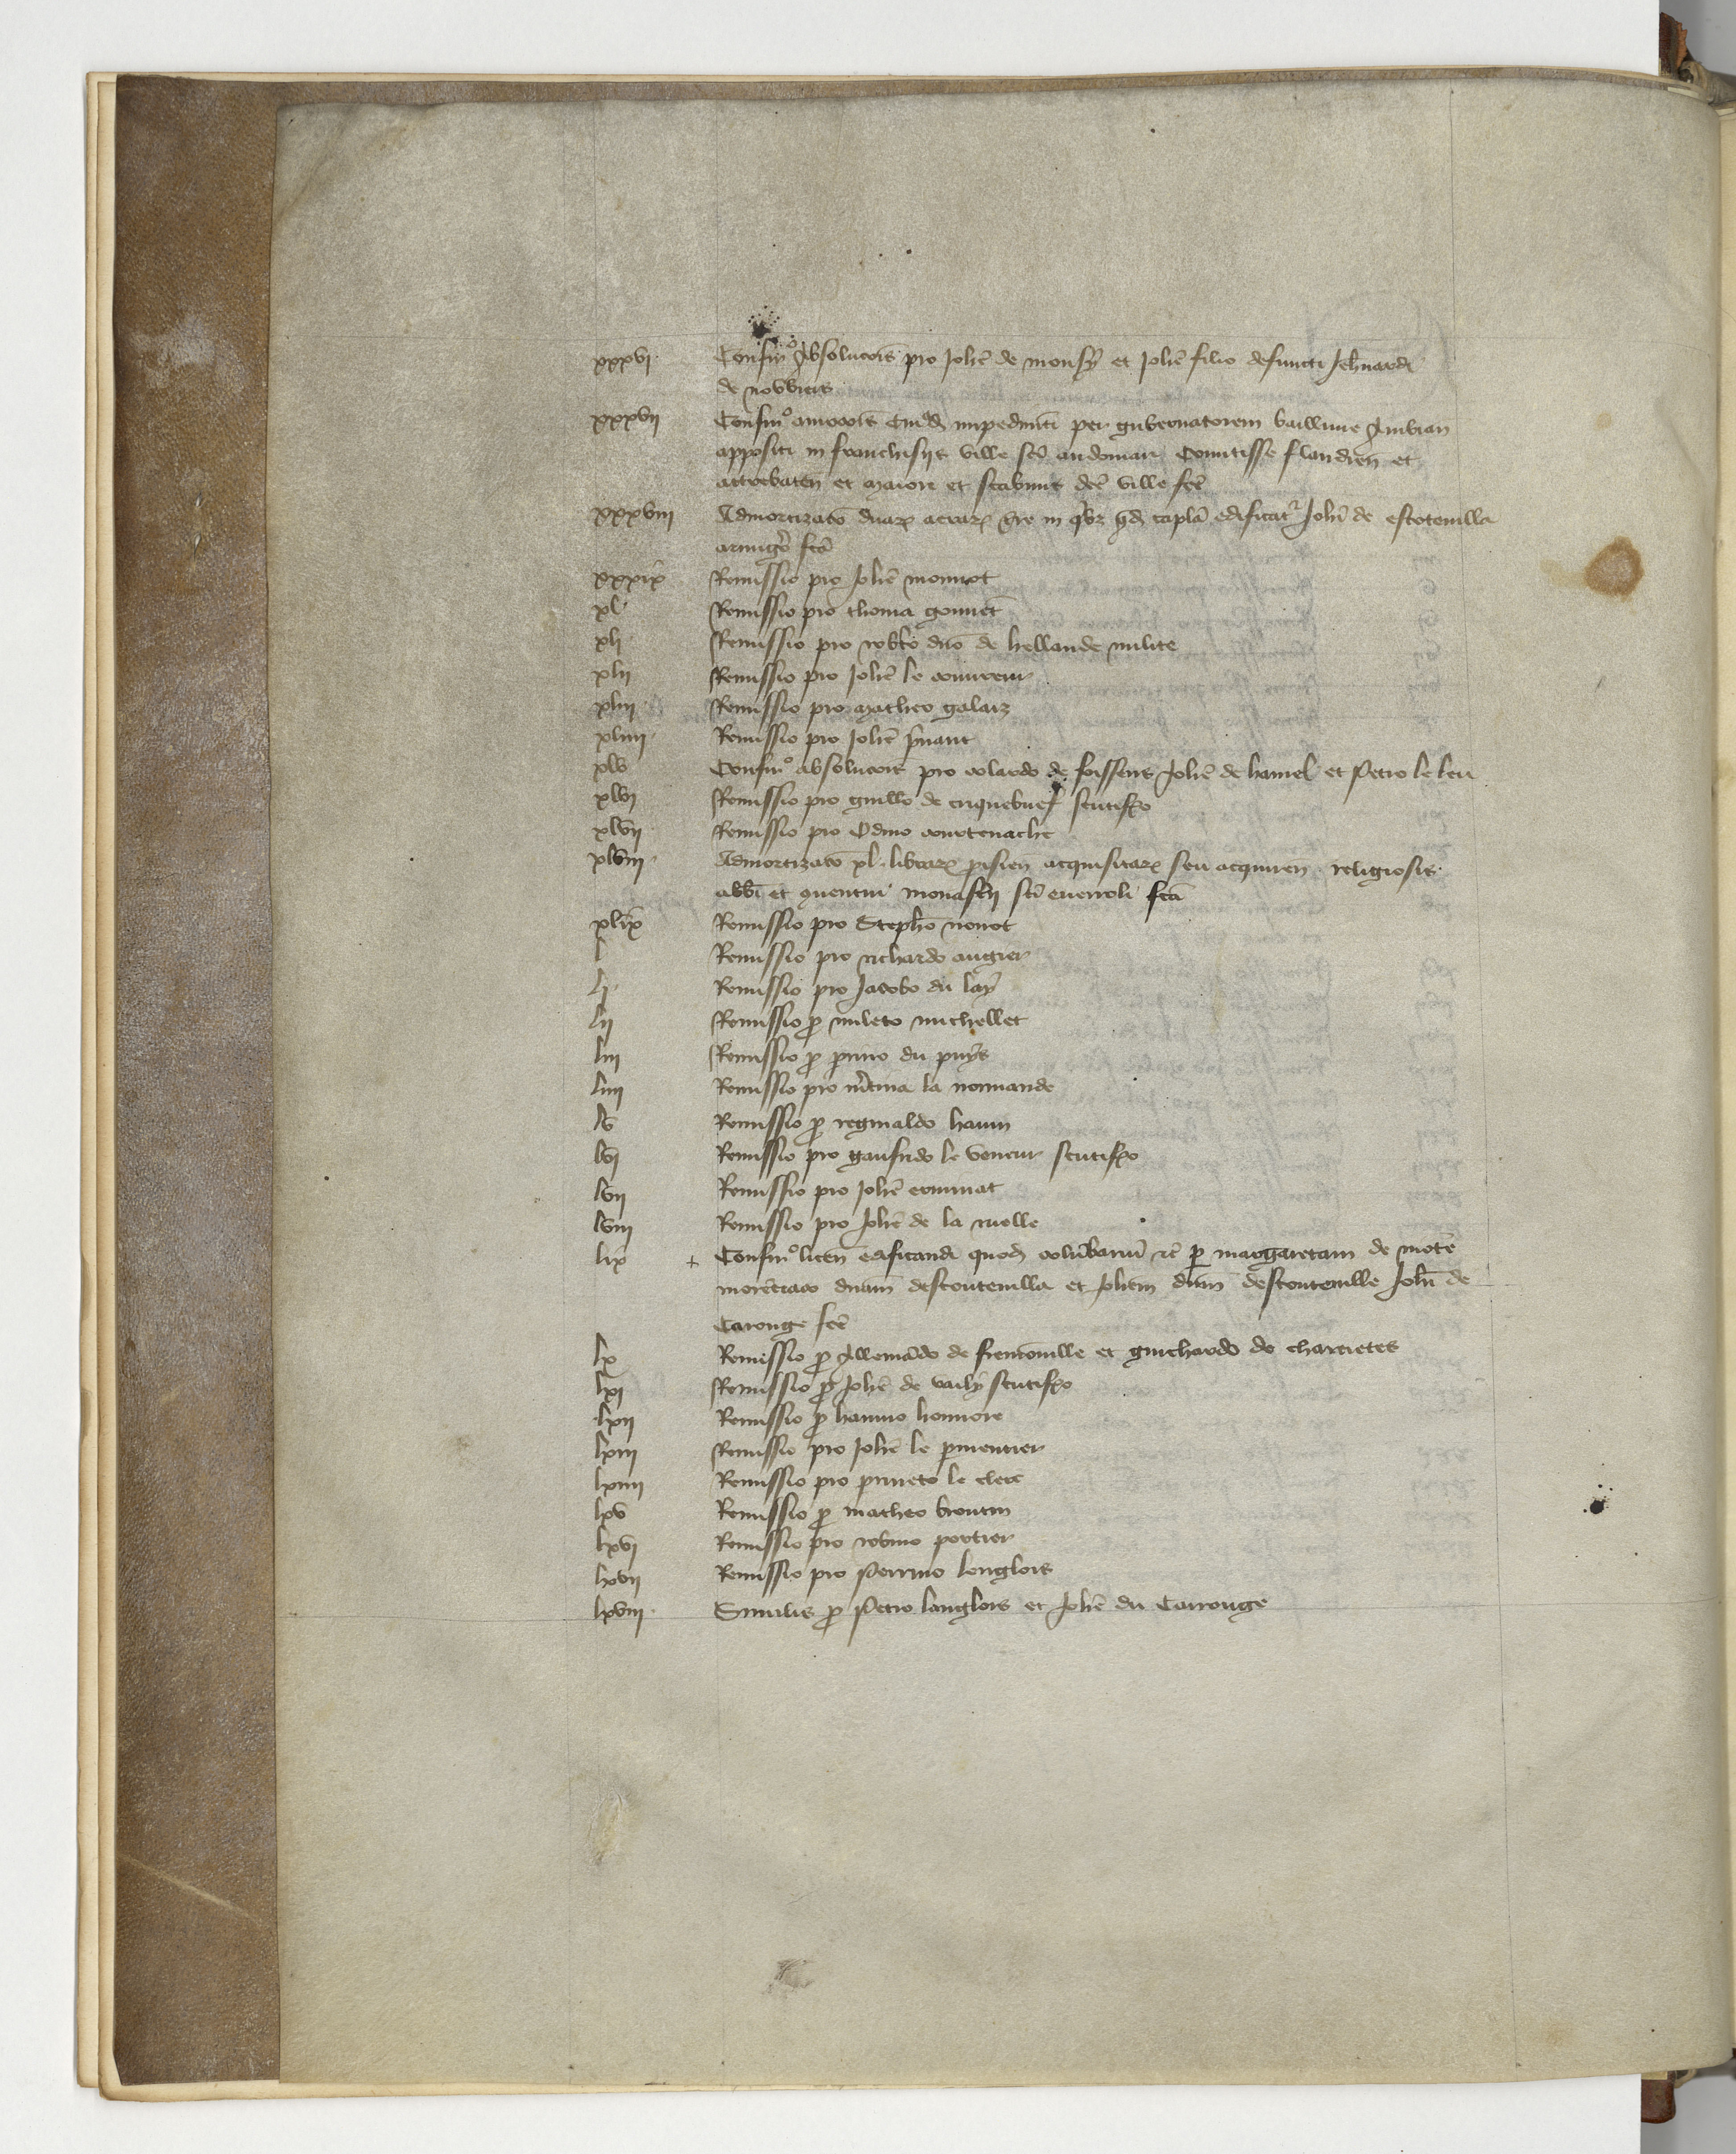 xxxvi. Confirmo absolucois pro Johe de monsy et Johe filio defuncti
de
xxxvii Confirmo amocois impedimti per gubernatorem baillivie Ambian
appositi in franchisiis ville sci audomari Comitisse flandren et
attrebaten et maiori et scabinis dce ville fce
xxxviii Admortizato duar acrar tre in qbz capla edificatr Johi de estotevilla
armigo fca
xxxix Remissio pro Johe monnot
xl. Remissio pro thoma gonnet
xli Remissio pro robto dno de hellande milite
xlii Remissio pro Johe le couvreur
xliii Remissio pro matheo galaiz
xliiii. Remissio pro Johe
xlv Confirmo absolucois pro colardo de foissens Johe de hamel et Petro le leu
xlvi Remissio pro guillo de criquebuef scutifero
xlvii Remissio pro Odino
xlviii. Admortizato xl. librar parisien acquisitar seu acquiren religiosis
abbi et conventui monasterii sci ebrulfi fca
xlix Remissio pro Stepho nonot
l Remissio pro richardo augier
li. Remissio pro Jacobo du lay
lii Remissio pro mileto michellet
liii Remissio pro du puys
liiii Remissio pro mtina la normande
lv Remissio pro reginaldo
lvi Remissio pro gaufrido le veneur scutifero
lvii Remissio pro Johe
lviii Remissio pro Johe de la ruelle
lix + Confirmo licen edificandi quodd columbariu pr margaretam de
dnam descoutevilla et Johem dnm descouteville Johi de
Carouge fce
lx Remissio pro de et guichardo de chartretes
lxi Remissio pro Johe de vaily scutifero
lxii Remissio pro honnore
lxiii Remissio pro Johe le pmentier
lxiiii Remissio pro le clerc
lxv Remissio pro matheo
lxvi Remissio pro robino portier
lxvii Remissio pro Perrino lenglois
lxviii. Similis pro Petro langlois et Johe du Carrouge